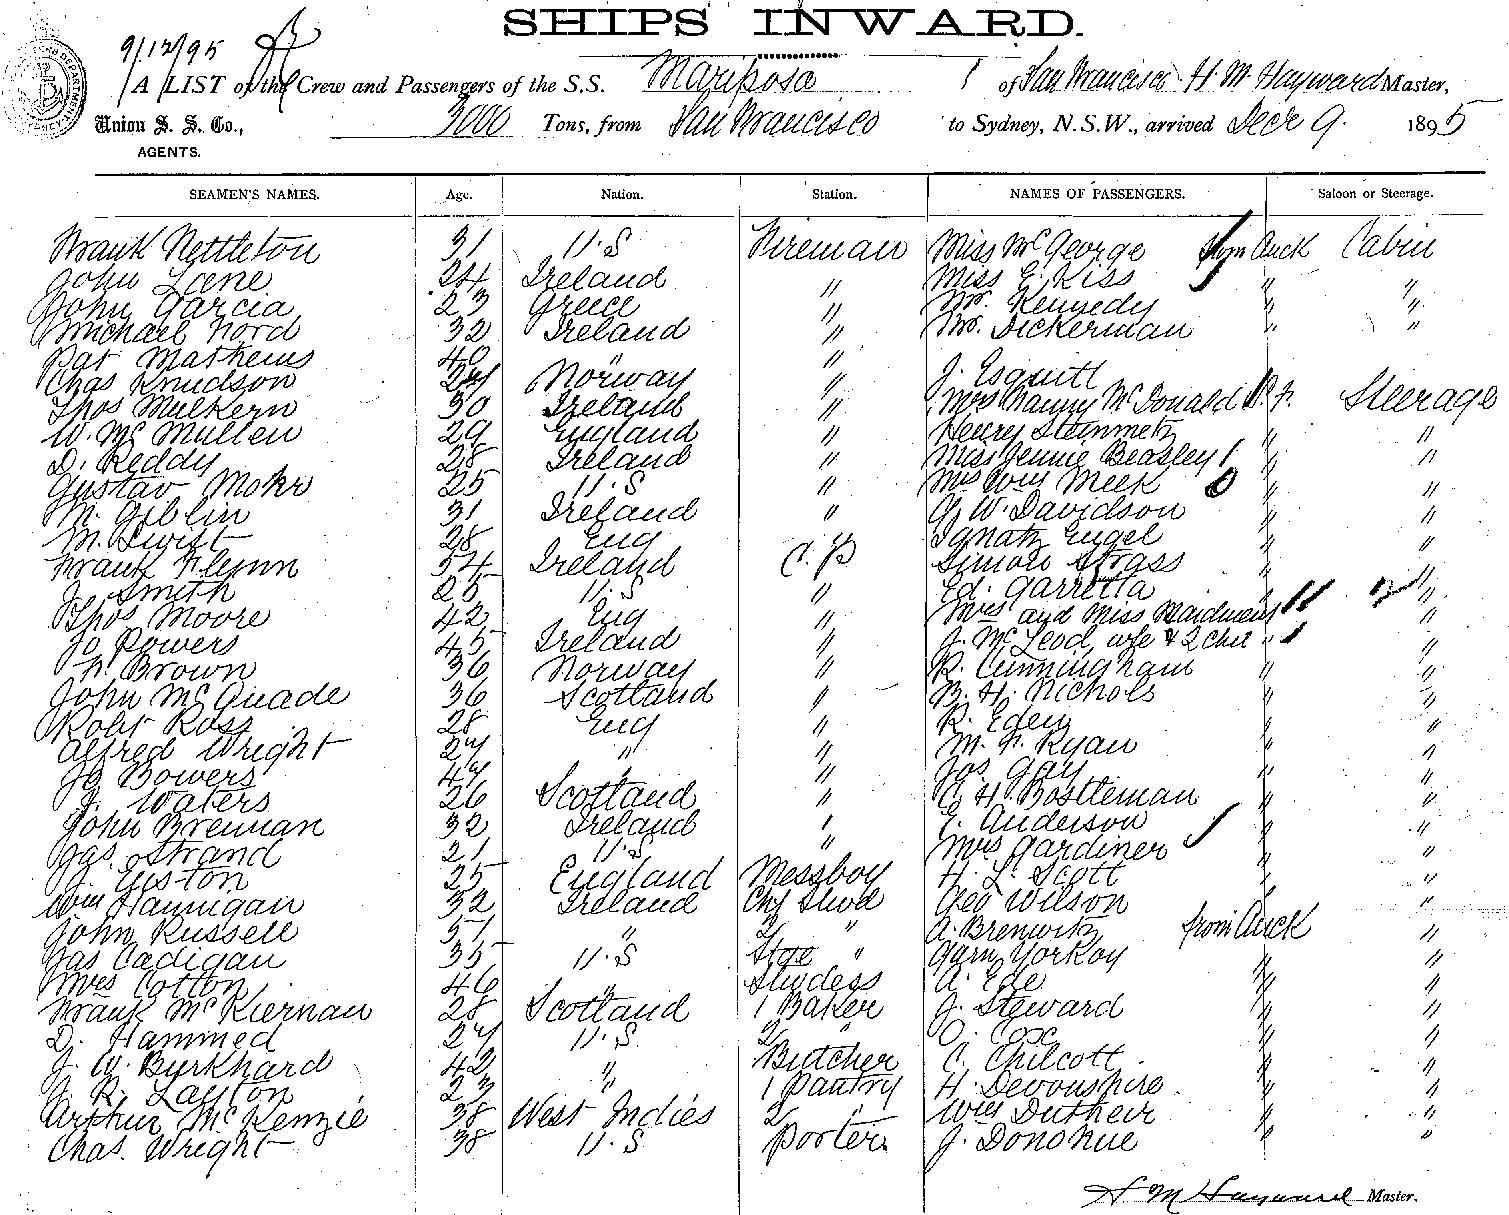 SHIPS INWARD.
9/12/95
A LIST of the Crew and Passengers of the S.S. Mariposa of San Francisco H. M. Hayward Master,
Union S. S. Co., 3000 Tons, from San Francisco to Sydney, N.S.W., arrived Decr 9. 1895
AGENTS.
SEAMEN'S NAMES. Age. Nation. Station. NAMES OF PASSENGERS. Saloon or Steerage.
Frank Nettleton 31 U.S Fireman Miss McGeorge from Auck Cabin
John Lane 24 Ireland " Miss E. Kiss " "
John Garcia 23 Greece " Mr. Kennedy " "
Michael Nord 32 Ireland " Mr. Dickerman " "
Pat Mathews 40 " "
Chas Knudson 24 Norway " J. Esquitt
Thos Mulkern 30 Ireland " Mrs Nanny McDonald S.F. Steerage
W. McMullen 29 England " Henry Steinmetz " "
D. Reddy 28 Ireland " Miss Jennie Beasley " "
Gustav Mohr 25 U.S " Mrs Wm Meek " "
M. Giblin 31 Ireland " G. W. Davidson " "
M. Swift 28 Eng C. P Ignatz Engel " "
Frank Flynn 34 Ireland Simon Strass " "
J. Smith 25 U.S " Ed. Garretta " "
Thos Moore 42 Eng " Mrs and Miss " "
Jo Powers 45 Ireland " J. McLeod, wfe & 2 chil " "
F. Brown 36 Norway " R. Cunningham " "
John McQuade 36 Scotland " B. H. Nichols " "
Robt Ross 28 Eng " R. Eden " "
Alfred Wright 27 " " M. F. Ryan " "
Jo Bowers 47 " " Jos. Gay " "
J. Waters 26 Scotland " C. H. Bostleman " "
John Brennan 32 Ireland " E. Anderson " "
Jas. Strand 21 U.S " Mrs Gardiner " "
J. Giston 25 England Messboy H. L. Scott " "
Wm Hannigan 32 Ireland Chf Stwd Geo Wilson " "
John Russell 57 " 2 " A. Brenwitz from Auck "
Jas Cadigan 35 U.S Stge " Yorkoy " "
Mrs Cotton 46 " Stwdess A. Ede " "
Frank McKiernan 28 Scotland 1 Baker J. Steward " "
D. Hammed 27 U.S 2 " O. Cox " "
J. W. Byrkhard 42 " Butcher C. Chilcott " "
J. R. Layton 23 " 1 Pantry H. Devonshire " "
Arthur McKenzie 38 West Indies 2 " Wm Dutheir " "
Chas. Wright 38 U.S Porter J. Donohue " "
H M Hayward Master.